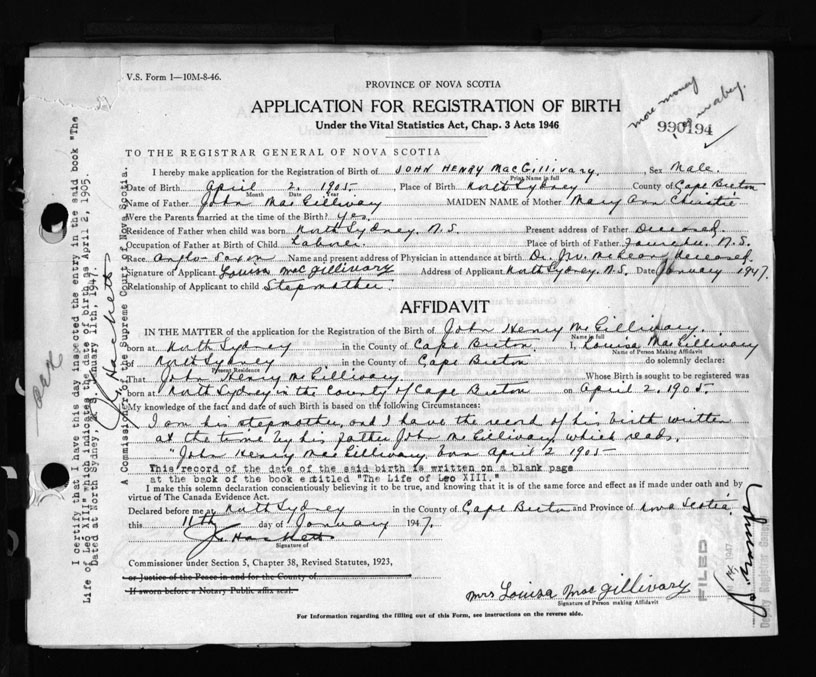 V.S. Form 1—10M-8-46.
more money
990194
PROVINCE OF NOVA SCOTIA
APPLICATION FOR REGISTRATION OF BIRTH
Under the Vital Statistics Act, Chap. 3 Acts 1946
TO THE REGISTRAR GENERAL OF NOVA SCOTIA
I hereby make application for the Registration of Birth of JOHN HENRY MacGillivary, Sex Male.
Print Name in full
Date of Birth April 2. 1905. Place of Birth North Sydney County of Cape Breton
Month Date Year
Name of Father John MacGillivary MAIDEN NAME of Mother Mary Ann Christie
Were the Parents married at the time of the Birth? yes.
Residence of Father when child was born North Sydney, N.S. Present address of Father Deceased.
Occupation of Father at Birth of Child Laborer. Place of birth of Father Fourchu. N.S.
Race Anglo-Saxon Name and present address of Physician in attendance at birth Dr. McLean deceased.
Signature of Applicant Louisa MacGillivary Address of Applicant North Sydney. N.S. Date January 1947.
Relationship of Applicant to child Stepmother.
AFFIDAVIT
IN THE MATTER of the application for the Registration of the Birth of John Henry McGillivary.
Name in full
born at North Sydney in the County of Cape Breton. I, Louisa MacGillivary
Name of Person Making Affidavit
of North Sydney in the County of Cape Breton do solemnly declare:
Present Residence
That John Henry McGillivary Whose Birth is sought to be registered was
born at North Sydney in the County of Cape Breton on April 2, 1905.
My knowledge of the fact and date of such Birth is based on the following Circumstances:
I am his stepmother, and I have the record of his birth written
at the time by his father John McGillivary, which reads,
"John Henry MacGillivary, born April 2 1905
This record of the date of the said birth is written on a blank page
at the back of the book entitled "The Life of Leo XIII."
I make this solemn declaration conscientiously believing it to be true, and knowing that it is of the same force and effect as if made under oath and by
virtue of The Canada Evidence Act.
Declared before me at North Sydney in the County of Cape Breton and Province of Nova Scotia
this 11th day of January 1947.
J. Hackett
Signature of
Commissioner under Section 5, Chapter 38, Revised Statutes, 1923,
or Justice of the Peace in and for the County of
If sworn before a Notary Public affix seal.
Mrs Louisa MacGillivary
Signature of Person making Affidavit
For Information regarding the filling out of this Form, see instructions on the reverse side.
I certify that I have this day inspected the entry in the said book "The
Life of Leo XIII" which indicates the date of birth as April 2, 1905.
Dated at North Sydney, N.S. January 11th, 1947.
J. Hackett
A Commissioner of the Supreme Court of Nova Scotia.
FILED
1947
Deputy Registrar General